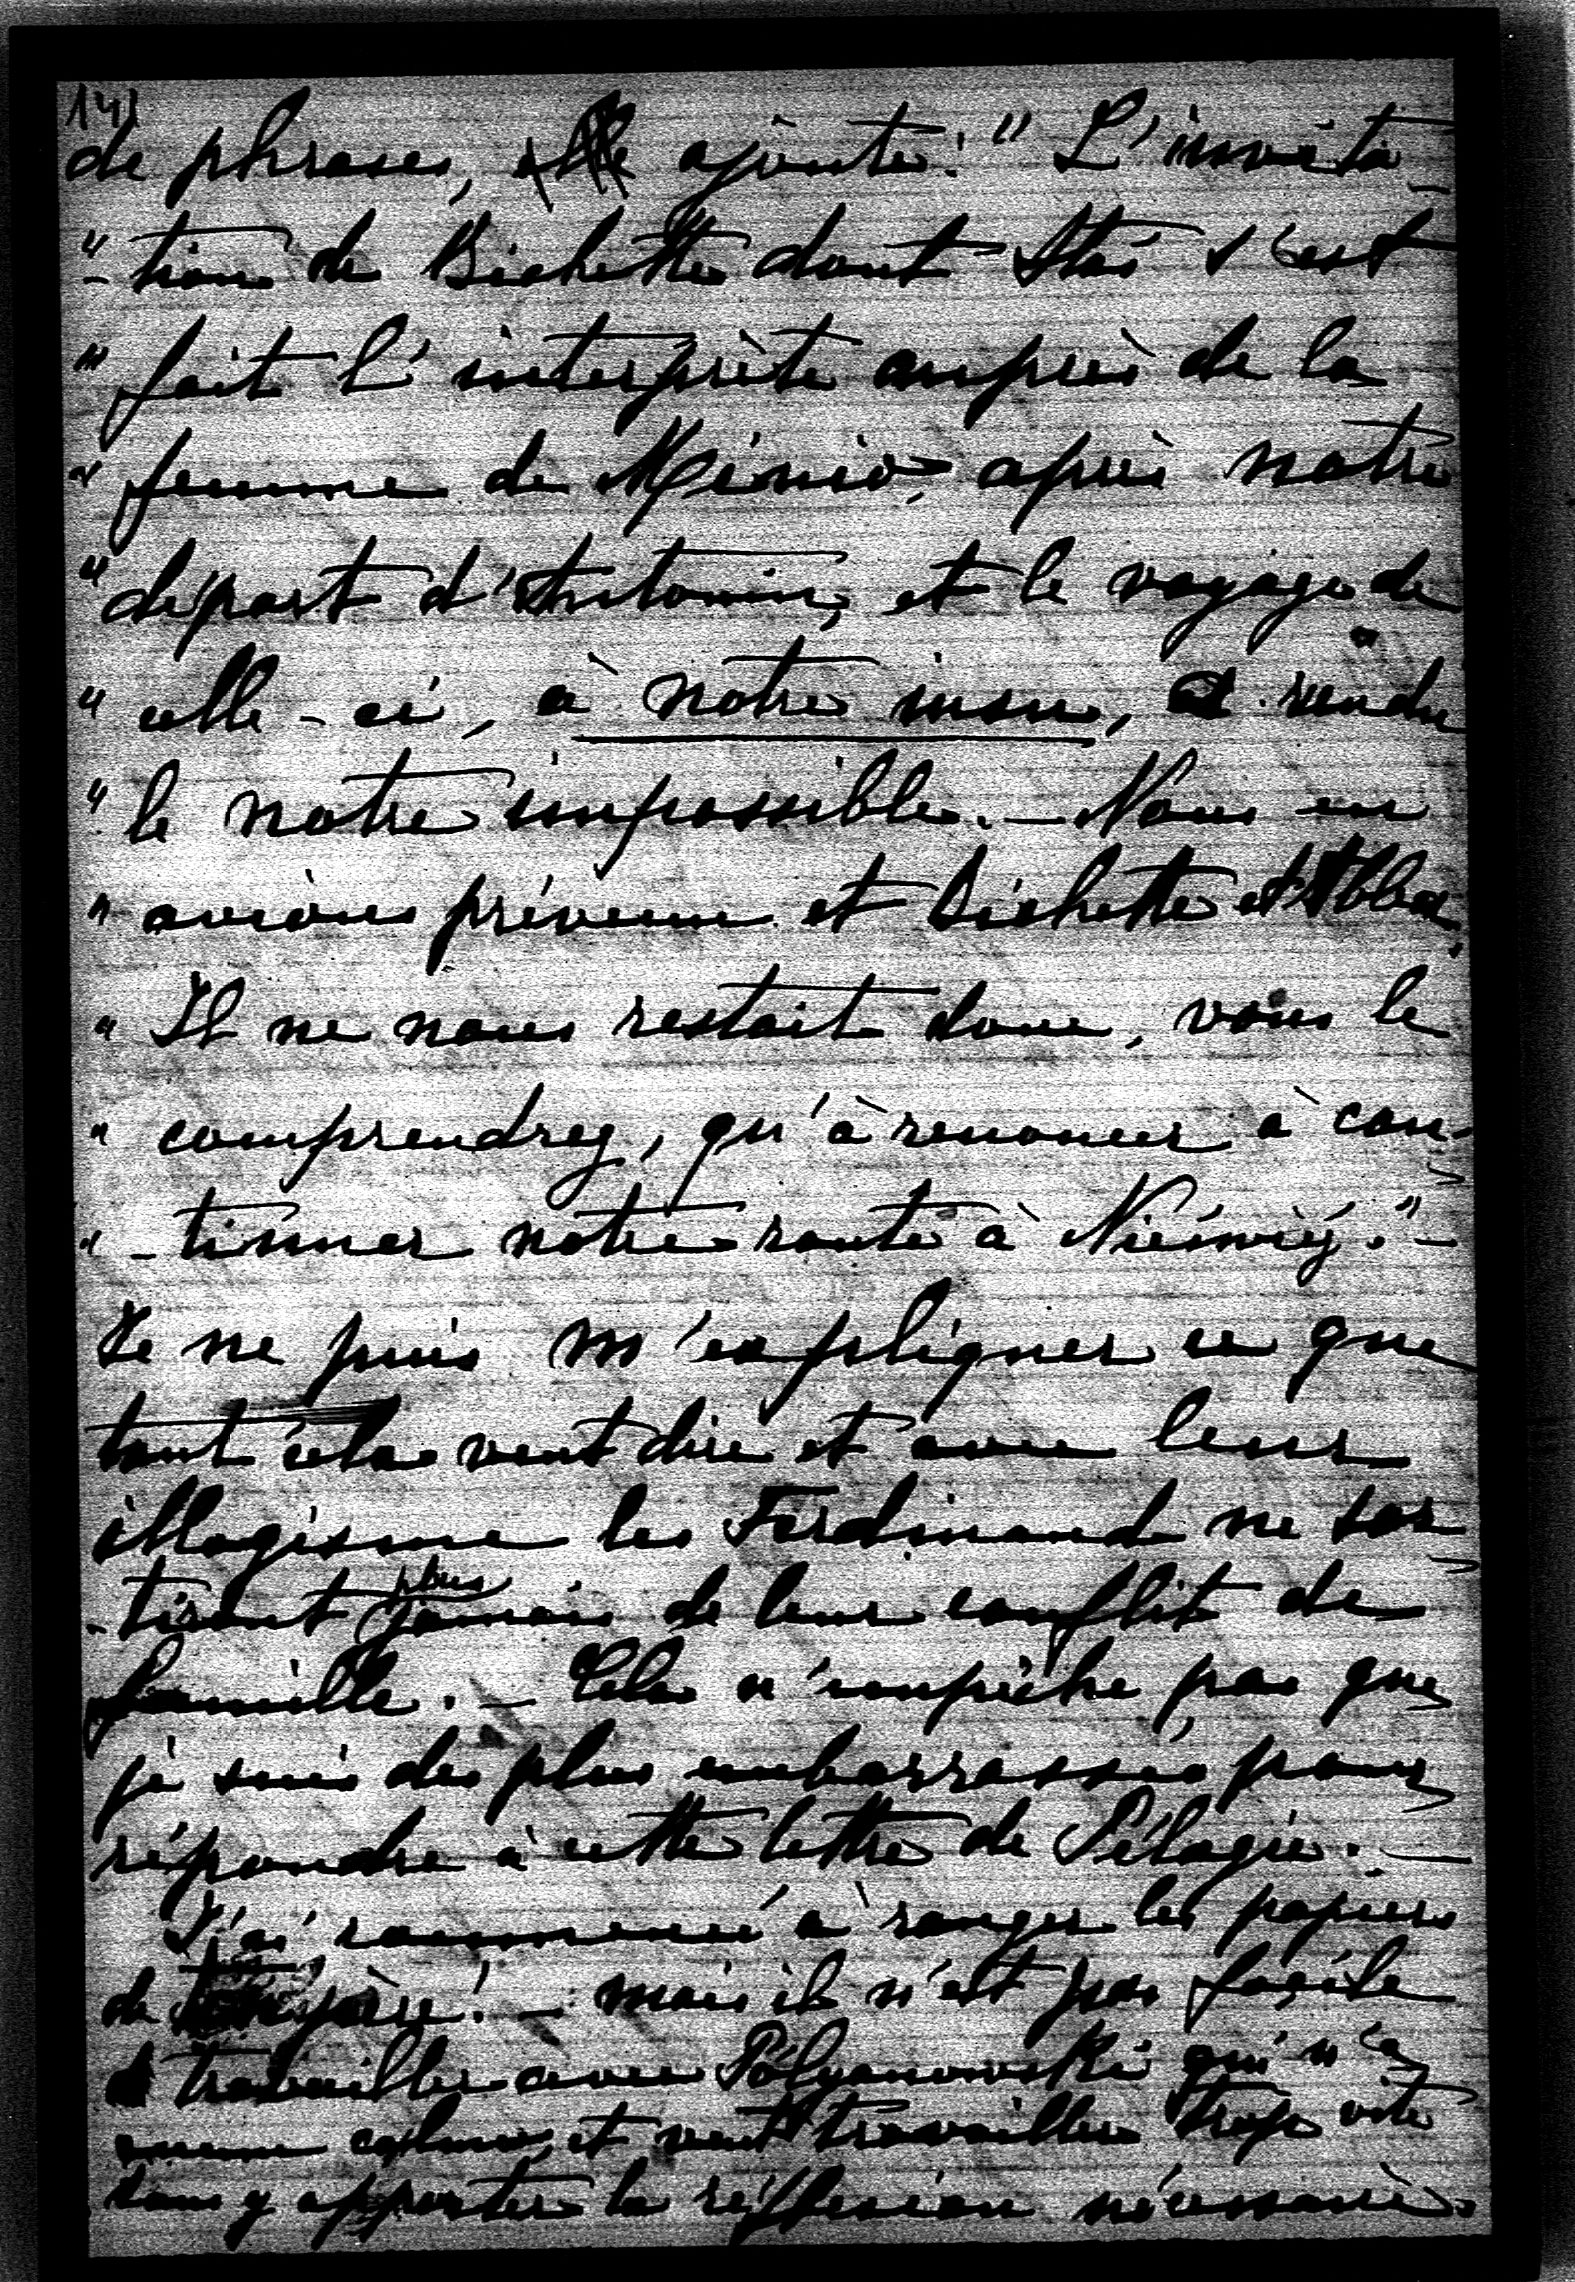 141
de phrases, elle ajoute: " L'invita-
"-tion de Bichette dont Stas s'est
" fait l'interprète auprès de la
" femme de Ménio, après notre
" départ d'Antonin, et le voyage de
" celle-ci, à notre insu, a rendu
" le notre impossible. — Nous en
" avions prévenu et Bichette et Abba.
" Il ne nous restait donc, vous le
" comprendrez, qu'à renoncer à con-
"-tinuer notre route à Niéswiéj." —
Je ne puis m'expliquer ce que
tout cela veut dire et avec leur
illogisme les Ferdinand ne sor-
-tiront plus jamais de leur conflit de
famille. — Cela n'empêche pas que
je suis des plus embarrassés pour
répondre à cette lettre de Pélagie. —
J'ai recommencé à ranger les papiers
de père! — mais il n'est pas facile
travailler avec qui n'a
aucun calme, et veut travailler trop vite
sans y apporter la réflexion nécessaire.